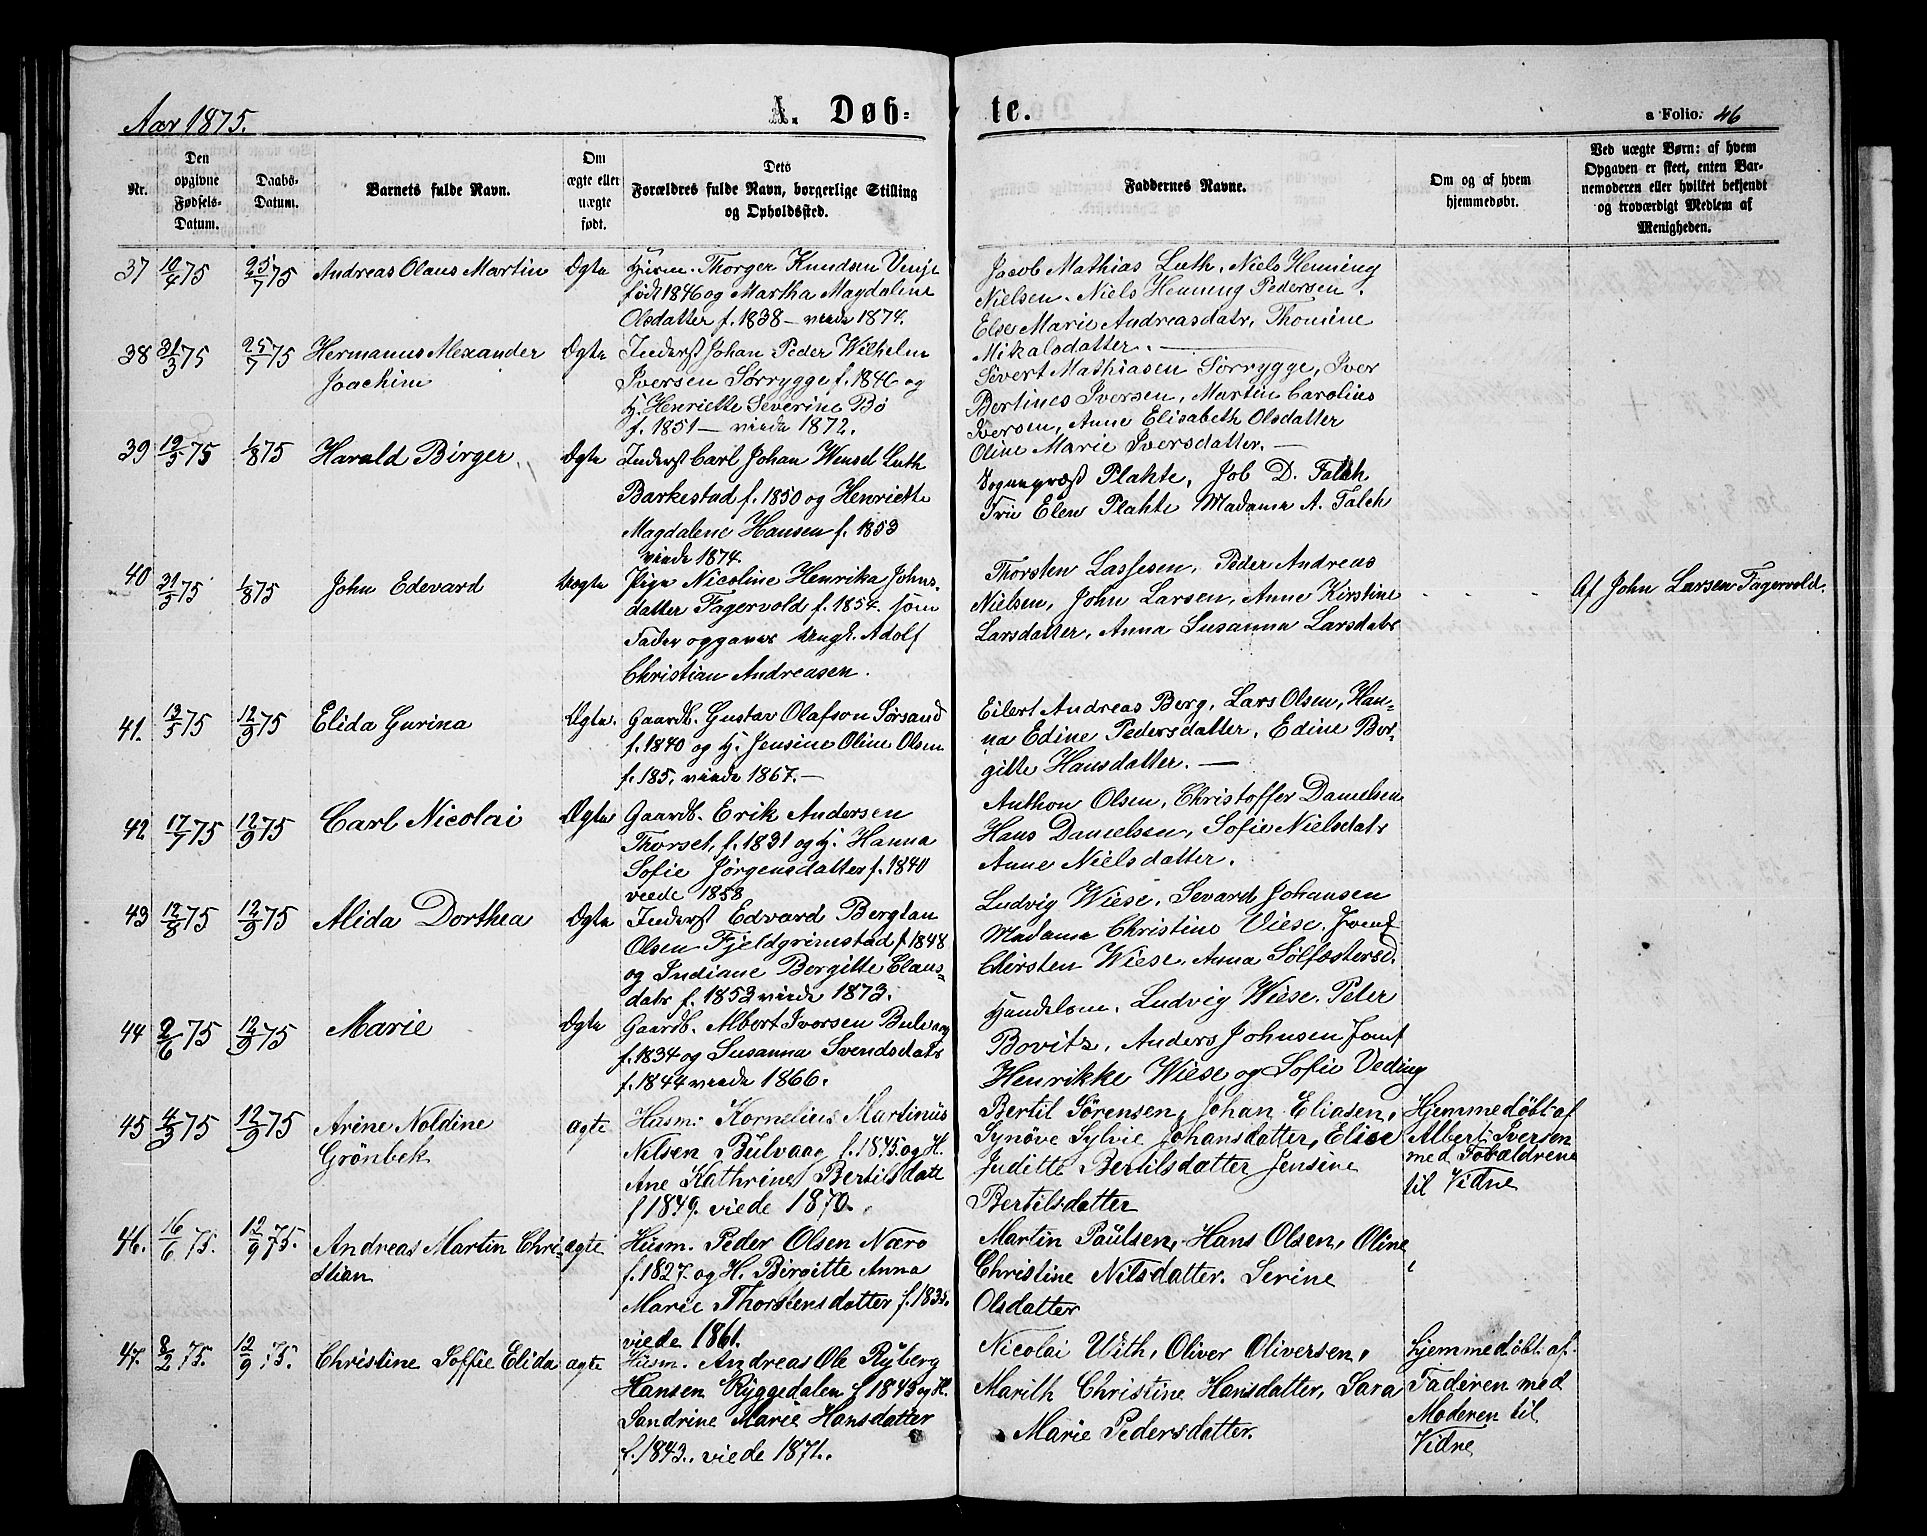 Aar 1875.
A. Døb-
te.
a Folio. 46
Nr.
Den opgivne Fødsels-Datum.
Daabs-Datum.
Barnets fulde Navn.
Om ægte eller uægte født.
Dets Forældres fulde Navn, borgerlige Stilling og Opholdssted.
Faddernes Navne.
Om og af hvem hjemmedøbt.
Ved uægte Børn: af hvem Opgaven er skeet, enten Barnemoderen eller hvilket bekjendt og troværdigt Medlem af Menigheden.
37 10/4 75 25/7 75 Andreas Olaus Martin Ægte
Husm. Thorger Knudsen Venje
født 1846 og Martha Magdalene
Olsdatter f. 1838 – viede 1874.
Jacob Mathias Luth, Niels Henning
Nielsen. Niels Henning Pedersen.
Else Marie Andreasdatr, Thomine
Mikalsdatter. —
38 31/3 75 25/7 75 Hermanus Alexander Ægte
Joachim
Inderst Johan Peder Wilhelm
Iversen Sørrygge f. 1846 og
H. Henriette Severine Bö
f. 1851 – viede 1872.
Sivert Mathiasen Sørrygge, Iver
Bertines Iversen, Martin Carolius
Iversen, Anne Elisabeth Olsdatter
Oline Marie Iversdatter. —
39 19/5 75 1/8 75 Harald Birger Ægte
Inderst Carl Johan Wensel Luth
Barkestad f. 1850 og Henriette
Magdalene Hansen f. 1853
viede 1874.
Sognepræst Plahte, Job D. Falch
Fru Elen Plahte Madame A. Falch
40 31/3 75 1/8 75 John Edevard Uægte
Pige Nicoline Henrika Johns-
datter Fagervold f. 1854. som
Fader opgaves Ungk. Adolf
Christian Andreasen.
Thorsten Lassesen, Peder Andreas
Nielsen, John Larsen, Anne Kirstine
Larsdatter, Anna Susanna Larsdatr
Af John Larsen Fagervold.
41. 13/5 75 12/9 75 Elida Gurina Ægte.
Gaardb. Gustav Olafson Sørsand
f. 1840 og H. Jensine Oline Olsen
f. 185. viede 1867. —
Eilert Andreas Berg, Lars Olsen, Han-
na Edine Pedersdatter, Edine Ber-
gitte Hansdatter. —
42 17/7 75 12/9 75 Carl Nicolai Ægte
Gaardb. Erik Andersen
Thorset, f. 1831 og H. Hanna
Sofie Jørgensdatter f. 1840
viede 1858
Anthon Olsen, Christoffer Danielsen
Hans Danielsen, Sofie Nielsdatr
Anne Nielsdatter.
43 12/8 75 12/9 75 Alida Dorthea Ægte
Inderst Edvard Bergtan
Olsen Fjeldgrimstad f. 1848
og Indiane Bergitte Claus-
datr f. 1853 viede 1873.
Ludvig Wiese, Sevard Johansen
Madame Christine Viese. Jomf
Chirsten Wiese, Anna Sølfæstersd.
44 2/6 75 12/9 75 Marie Ægte
Gaardb. Albert Iversen Bulvaag
f. 1834 og Susanna Svendsdatr
f. 1844 viede 1866.
Handelsm. Ludvig Wiese. Peter
Bovitz, Anders Johnsen Jomf
Henrikke Wiese og Sofie Veding
45 4/3 75 12/9 75 Arine Noldine ægte
Grönbek
Husm: Kornelius Martinüs
Nilsen Bülvaag f. 1845. og H.
Ane Kathrine Bertilsdatt
f 1849. viede 1870.
Bertil Sörensen, Johan Eliasen,
Synöve Sylvie Johansdatter, Elise
Juditte Bertilsdatter Jensine
Bertilsdatter
Hjemmedöbt af
Albert Iversen
med Forældrene
til Vidne
46. 16/6 75. 12/9 75. Andreas Martin Chri- ægte
stian
Hüsm. Peder Olsen Nærø
f. 1827. og H. Birgitte Anna
Marie Thorstensdatter f. 1835.
viede 1861.
Martin Paülsen, Hans Olsen, Oline
Christine Nilsdatter. Serine
Olsdatter
47. 8/2 75. 12/9 75. Christine Soffie Elida ægte
Hüsm. Andreas Ole Ryberg
Hansen Ryggedalen f. 1843 og H.
Sandrine Marie Hansdatter
f. 1843. viede 1871.
Nicolai With, Oliver Oliversen,
Marith Christine Hansdatter, Sara
Marie Pedersdatter.
hjemmedöbt af
Faderen med
Moderen til
Vidne